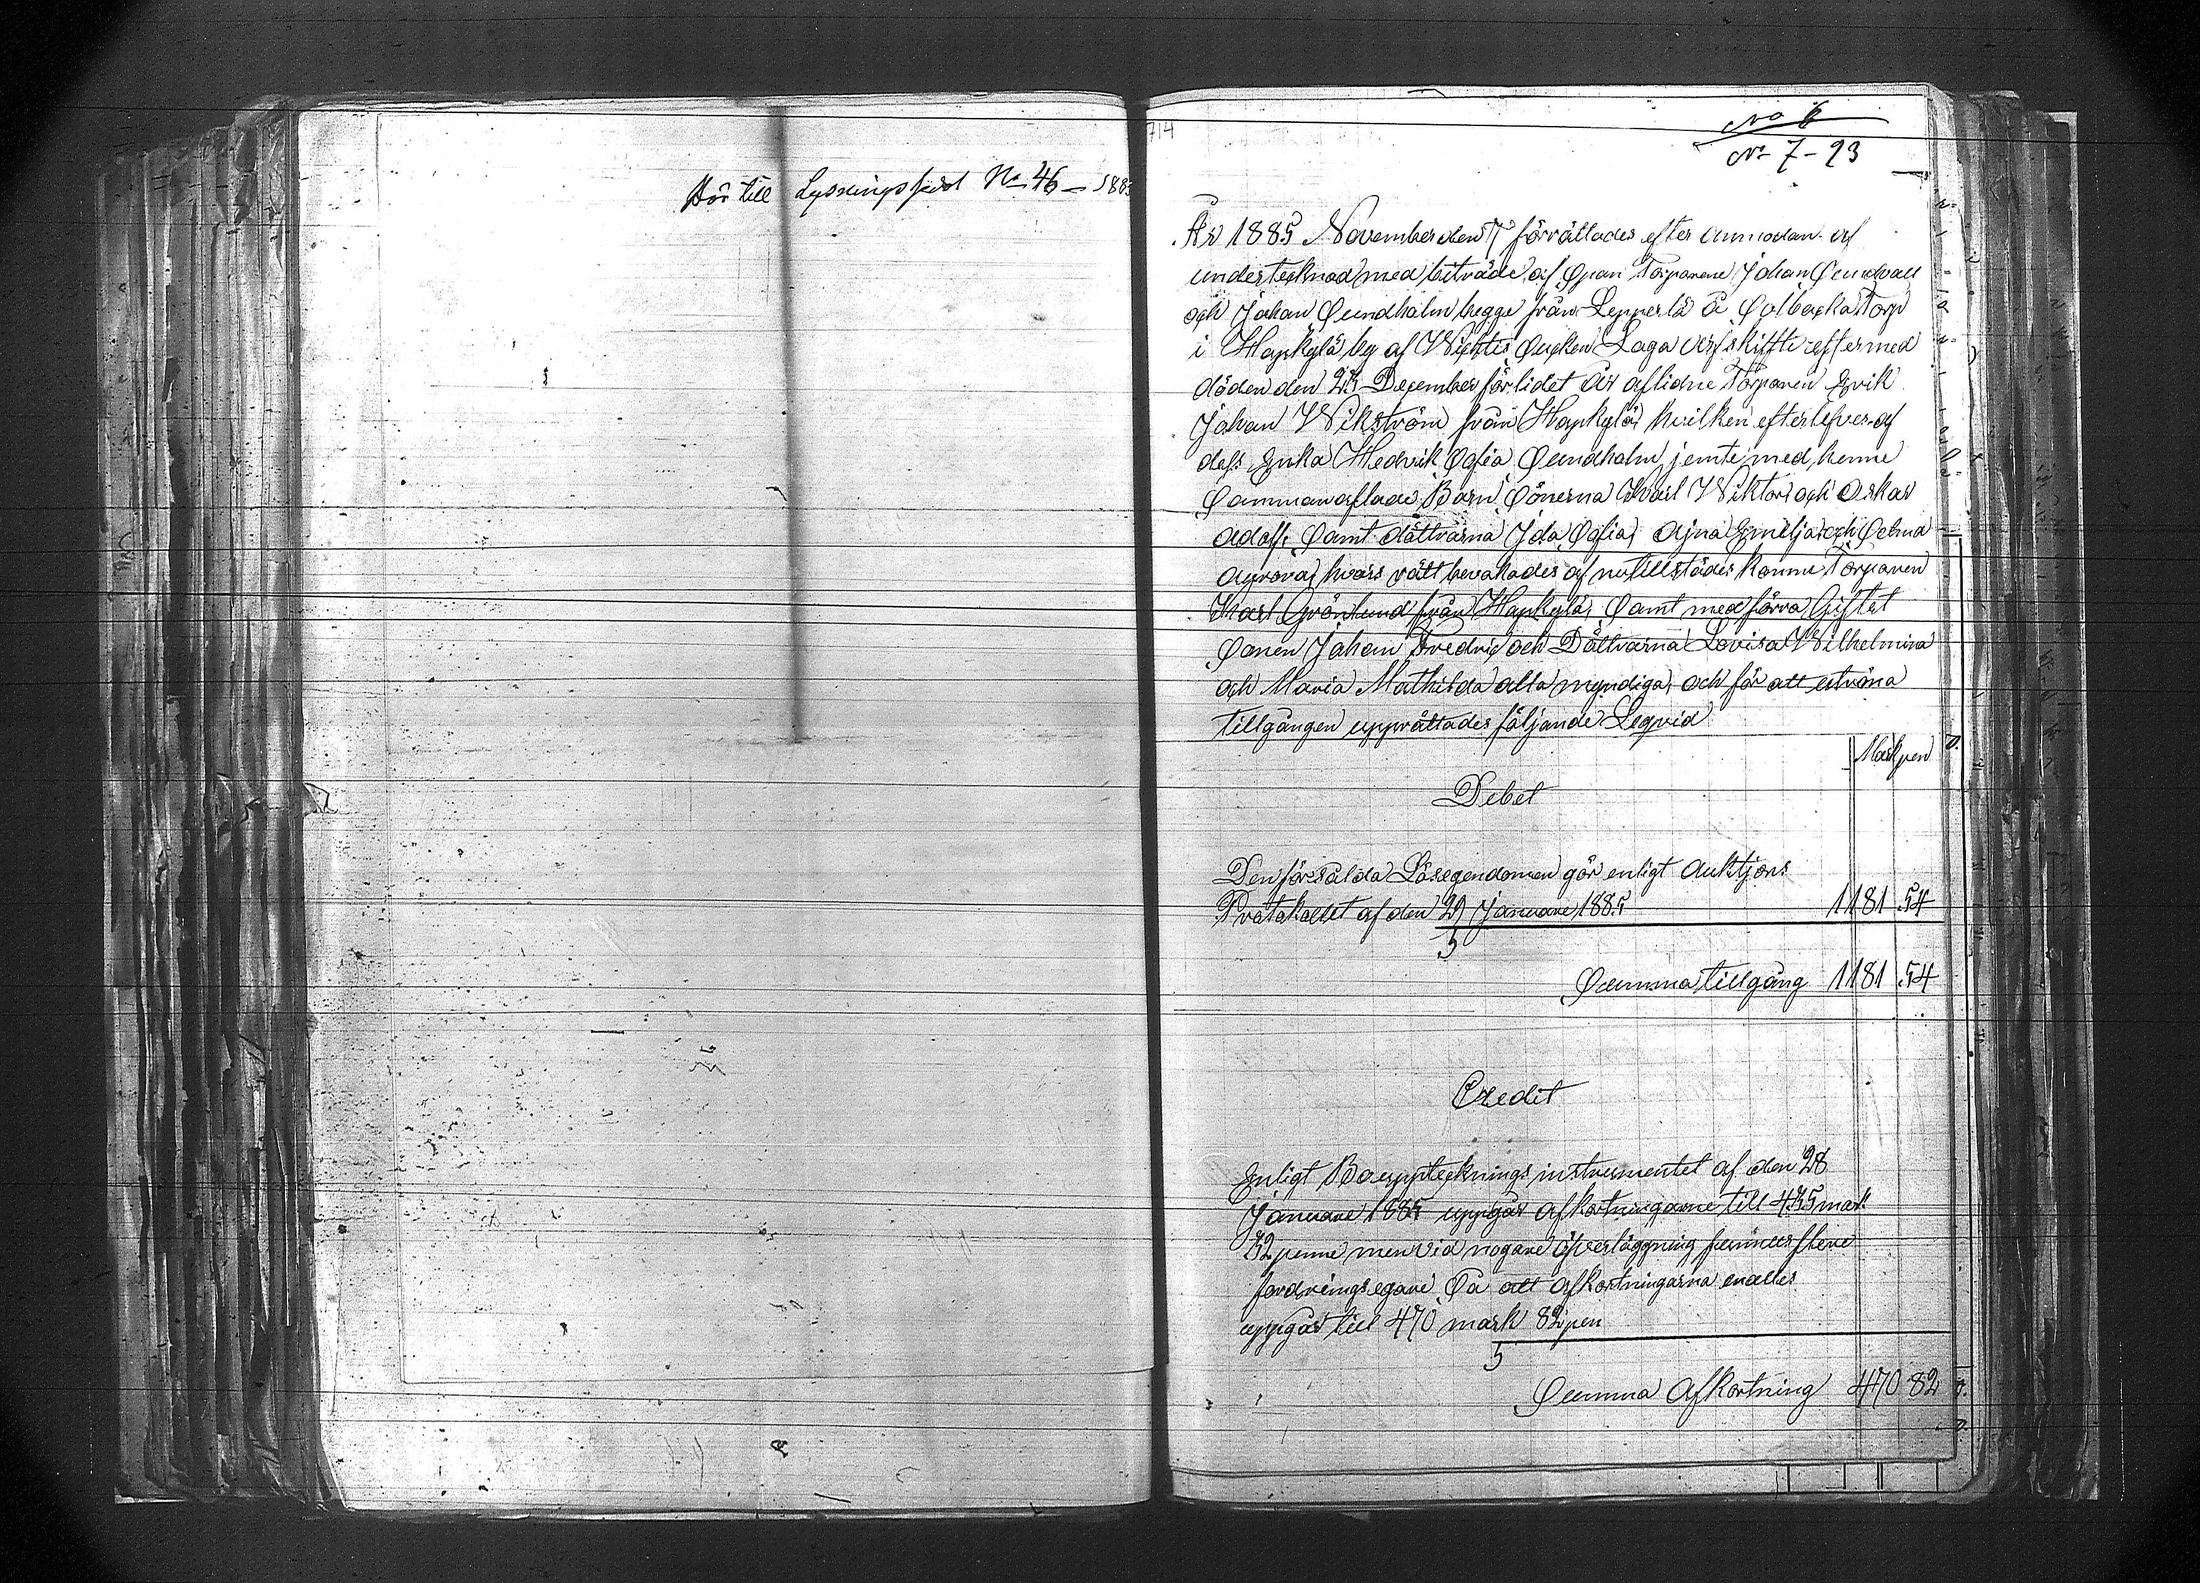 Hör till Lysningsprot No 46 – 188
714
No 6
No 7-93
År 1885 November den 7 förrättades efter anmodan af
undertecknad med biträde af Span Torparene Johan Sundvall
och Johan Sundholm begge från Lepperlä å Solbacka Torp
i Haapkylä by af Wichtis Sucken Laga arfskifte efter med
döden den 23 December förlidet år aflidne Torparen Erik
Johan Wikström från Haapkylä, hvilken efterlefves af
dess Enka Hedvik Sofia Sundholm jemte med henne
Sammanaflade Barn, Sönerna Karl Wiktor, och Oskar
Adolf, Samt döttrarna Ida Sofia, Ajna Emelja och Selma
Aurora, hvars rätt bevakades af nu tillstädes komne Torparen
Karl Grönlund från Haapkylä, Samt med förra Giftet
Sonen Johan Fredrig och Döttrarna Lovisa Wilhelmina
och Maria Mathilda alla myndiga, och för att utröna
tillgången upprättades följande Leqvid
Mark pen
Debet
Den försålda Lösegendomen gör enligt Auktjons
Protokollet af den 29 Januare 1885 1181 54
S
Summa tillgång 1181 54
Credit
Enligt Bouppteknings instrumentet af den 28
Januare 1885 uppgår afkortningarne till 435 mark
52 penne men vid nogare öfverläggning funnes flere
fordringsegare Så att afkortningarna
uppgår till 470 mark 82 pen
S
Summa Afkortning 470 82